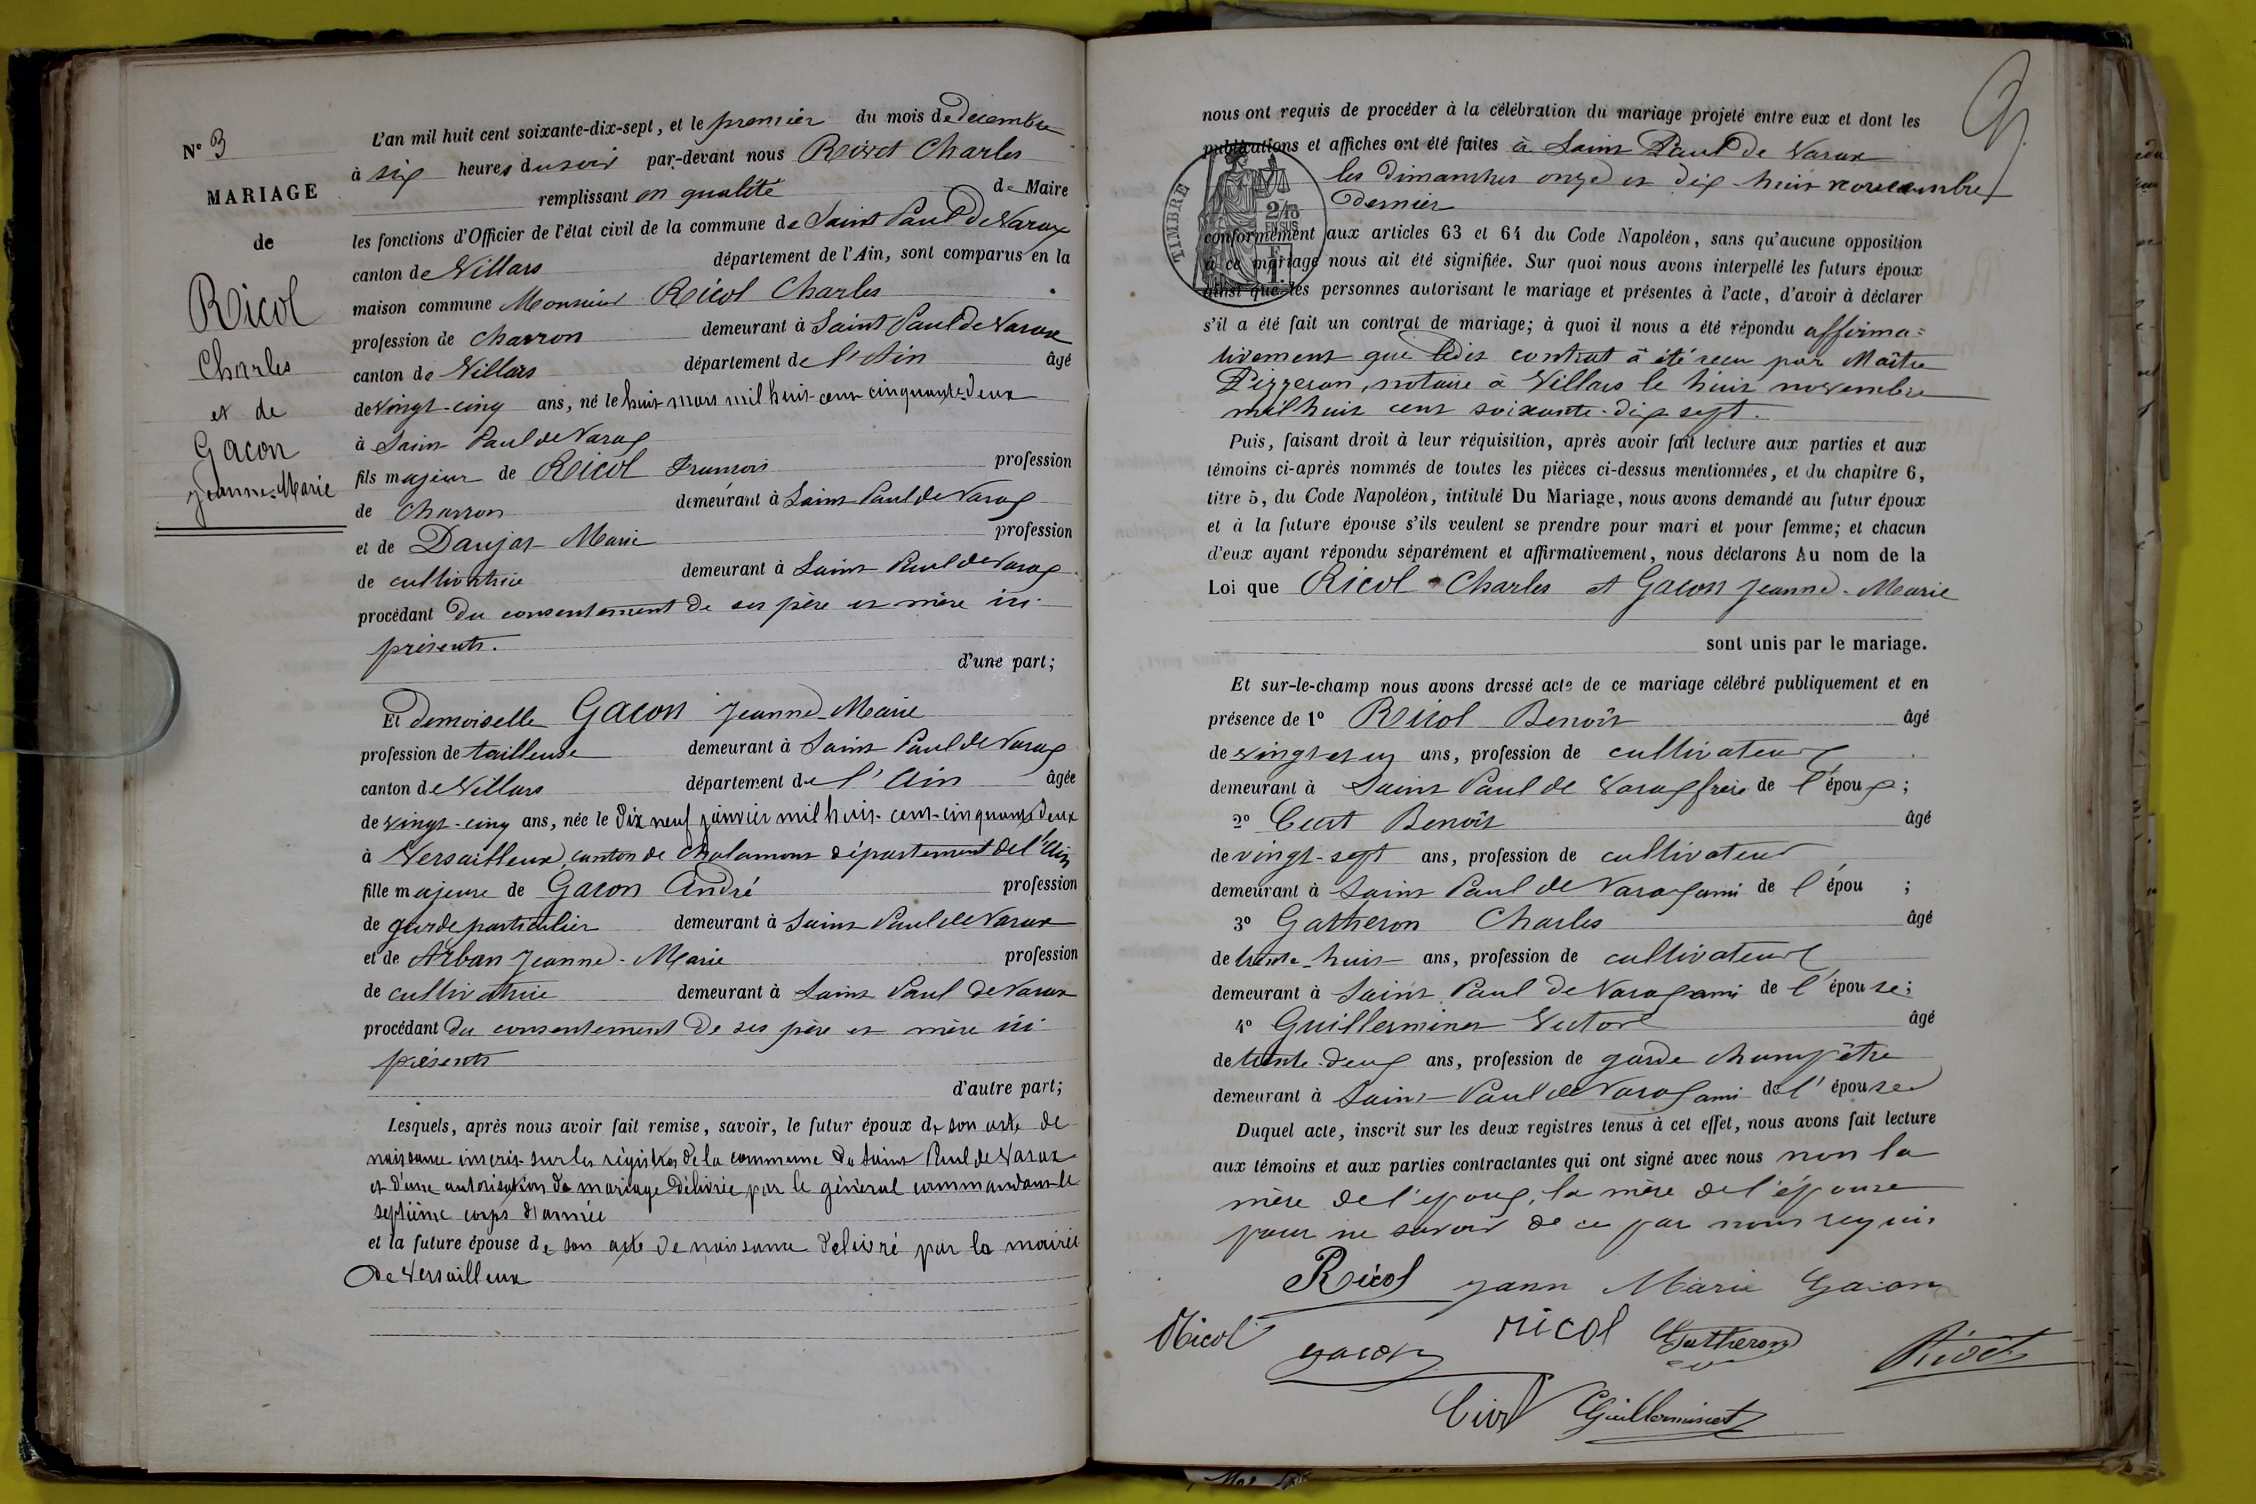 N° 3
MARIAGE
de
Ricol
Charles
et de
Gacon
Jeanne-Marie
L'an mil huit cent soixante-dix-sept, et le premier du mois de décembre
à six heures du soir par-devant nous Rivet Charles
remplissant en qualité de Maire
les fonctions d'Officier de l'état civil de la commune de Saint Paul de Varax
canton de Villars département de l'Ain, sont comparus en la
maison commune Monsieur Ricol Charles
profession de charron demeurant à Saint Paul de Varax
canton de Villars département de l'Ain âgé
de vingt-cinq ans, né le huit mars mil huit cent cinquante-deux
à Saint Paul de Varax
fils majeur de Ricol François profession
de charron demeurant à Saint Paul de Varax
et de Daujat Marie profession
de cultivatrice demeurant à Saint Paul de Varax
procédant du consentement de ses père et mère ici
présents.
d'une part;
Et demoiselle Gacon Jeanne-Marie
profession de tailleuse demeurant à Saint Paul de Varax
canton de Villars département de l'Ain âgée
de vingt-cinq ans, née le dix neuf janvier mil huit-cent-cinquante deux
à Versailleux, canton de Chalamont département de l'Ain
fille majeure de Gacon André profession
de garde particulier demeurant à Saint Paul de Varax
et de Arban Jeanne-Marie profession
de cultivatrice demeurant à Saint Paul de Varax
procédant du consentement de ses père et mère ici
présents
d'autre part;
Lesquels, après nous avoir fait remise, savoir, le futur époux de son acte de
naissance inscrit sur les régistres de la commune de Saint Paul de Varax
et d'une autorisation de mariage délivrée par le général commandant le
septième corps d'armée
et la future épouse de son acte de naissance délivré par la mairie
de Versailleux
nous ont requis de procéder à la célébration du mariage projeté entre eux et dont les
publications et affiches ont été faites à Saint Paul de Varax
les dimanches onze et dix-huit novembre
dernier
TIMBRE
2/10
EN SUS
conformément aux articles 63 et 64 du Code Napoléon, sans qu'aucune opposition
à ce mariage nous ait été signifiée. Sur quoi nous avons interpellé les futurs époux
ainsi que les personnes autorisant le mariage et présentes à l'acte, d'avoir à déclarer
s'il a été fait un contrat de mariage; à quoi il nous a été répondu affirma=
tivement que ledit contrat à été recu par Maître
notaire à Villars le huit novembre
mil huit cent soixante-dix sept.
Puis, faisant droit à leur réquisition, après avoir fait lecture aux parties et aux
témoins ci-après nommés de toutes les pièces ci-dessus mentionnées, et du chapitre 6,
titre 5, du Code Napoléon, intitulé Du Mariage, nous avons demandé au futur époux
et à la future épouse s'ils veulent se prendre pour mari et pour femme; et chacun
d'eux ayant répondu séparément et affirmativement, nous déclarons Au nom de la
Loi que Ricol Charles et Gacon Jeanne-Marie
sont unis par le mariage.
Et sur-le-champ nous avons dressé acte de ce mariage célébré publiquement et en
présence de 1° Ricol Benoît âgé
de vingt et un ans, profession de cultivateur
demeurant à Saint Paul de Varax frère de l'époux;
2° Benoît âgé
de vingt-sept ans, profession de cultivateur
demeurant à Saint Paul de Varax ami de l'épou ;
3° Gatheron Charles âgé
de trente-huit ans, profession de cultivateur
demeurant à Saint Paul de Varax ami de l'épouse;
4° Guillerminet Victor âgé
de trente-deux ans, profession de garde champêtre
demeurant à Saint Paul de Varax ami de l'épouse
Duquel acte, inscrit sur les deux registres tenus à cet effet, nous avons fait lecture
aux témoins et aux parties contractantes qui ont signé avec nous non la
mère de l'époux, la mère de l'épouse
pour ne savoir de ce par nous requis
Ricol Jann Marie Gacon
Ricol gacon ricol Gatheron Rivet
Guillerminet